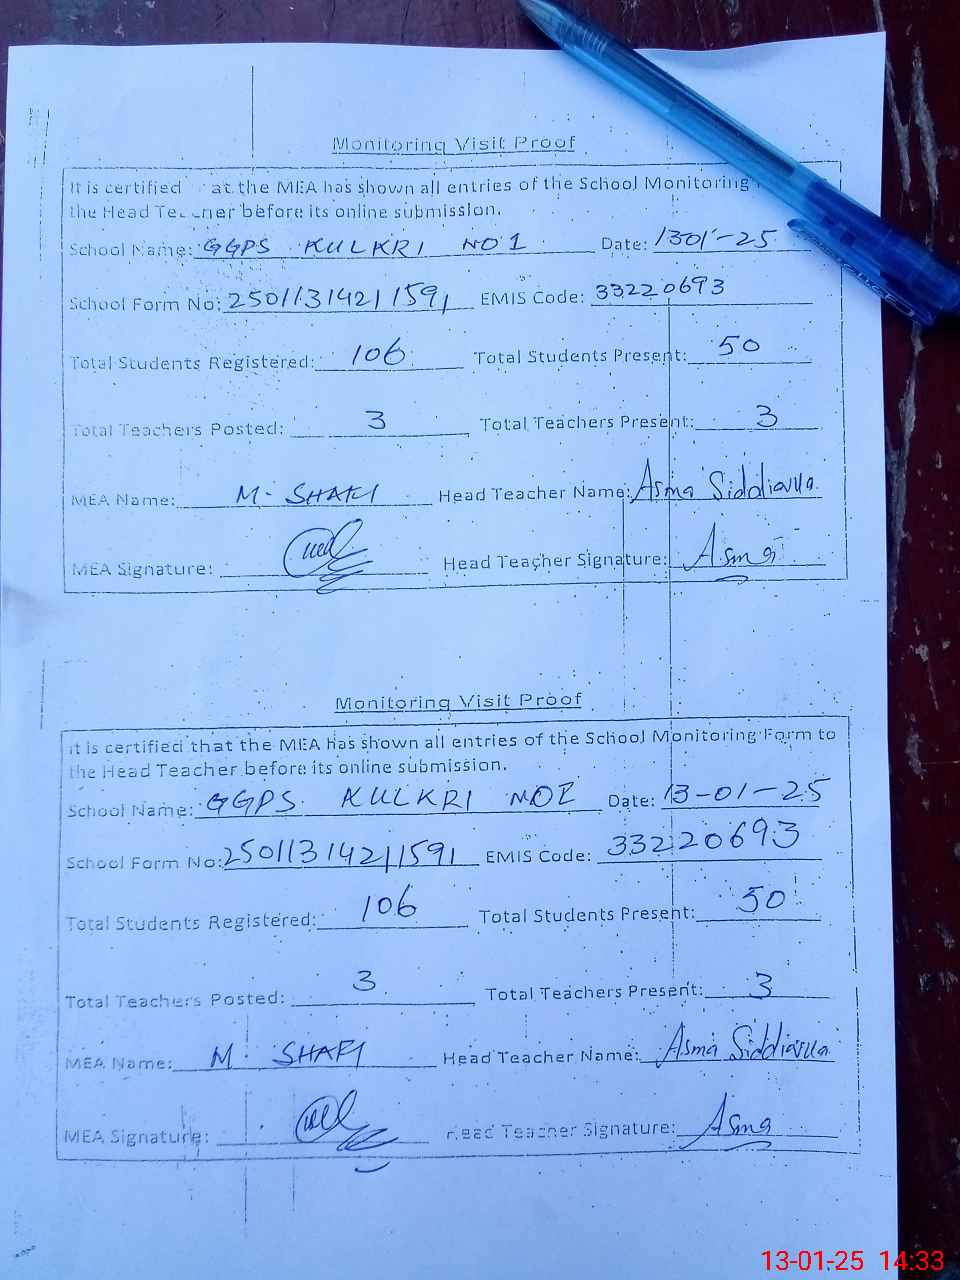 Monitoring Visit Proof
It is certified at the MEA has shown all entries of the School Monitoring
the Head Teacher before its online submission.
School Name: GGPS KULKRI NO 1 Date: 1301-25
School Form No: 25011314211591 EMIS Code: 33220693
Total Students Registered: 106 Total Students Present: 50
Total Teachers Posted: 3 Total Teachers Present: 3
MEA Name: M. SHAFI Head Teacher Name: Asma
MEA Signature: Head Teacher Signature: Asma
Monitoring Visit Proof
It is certified that the MEA has shown all entries of the School Monitoring Form to
the Head Teacher before its online submission.
School Name: GGPS KULKRI NO I Date: 13-01-25
School Form No: 25011314211591 EMIS Code: 33220693
Total Students Registered: 106 Total Students Present: 50
Total Teachers Posted: 3 Total Teachers Present: 3
MEA Name: M. SHAFI Head Teacher Name: Asma
MEA Signature: Head Teacher Signature: Asma
13-01-25 14:33